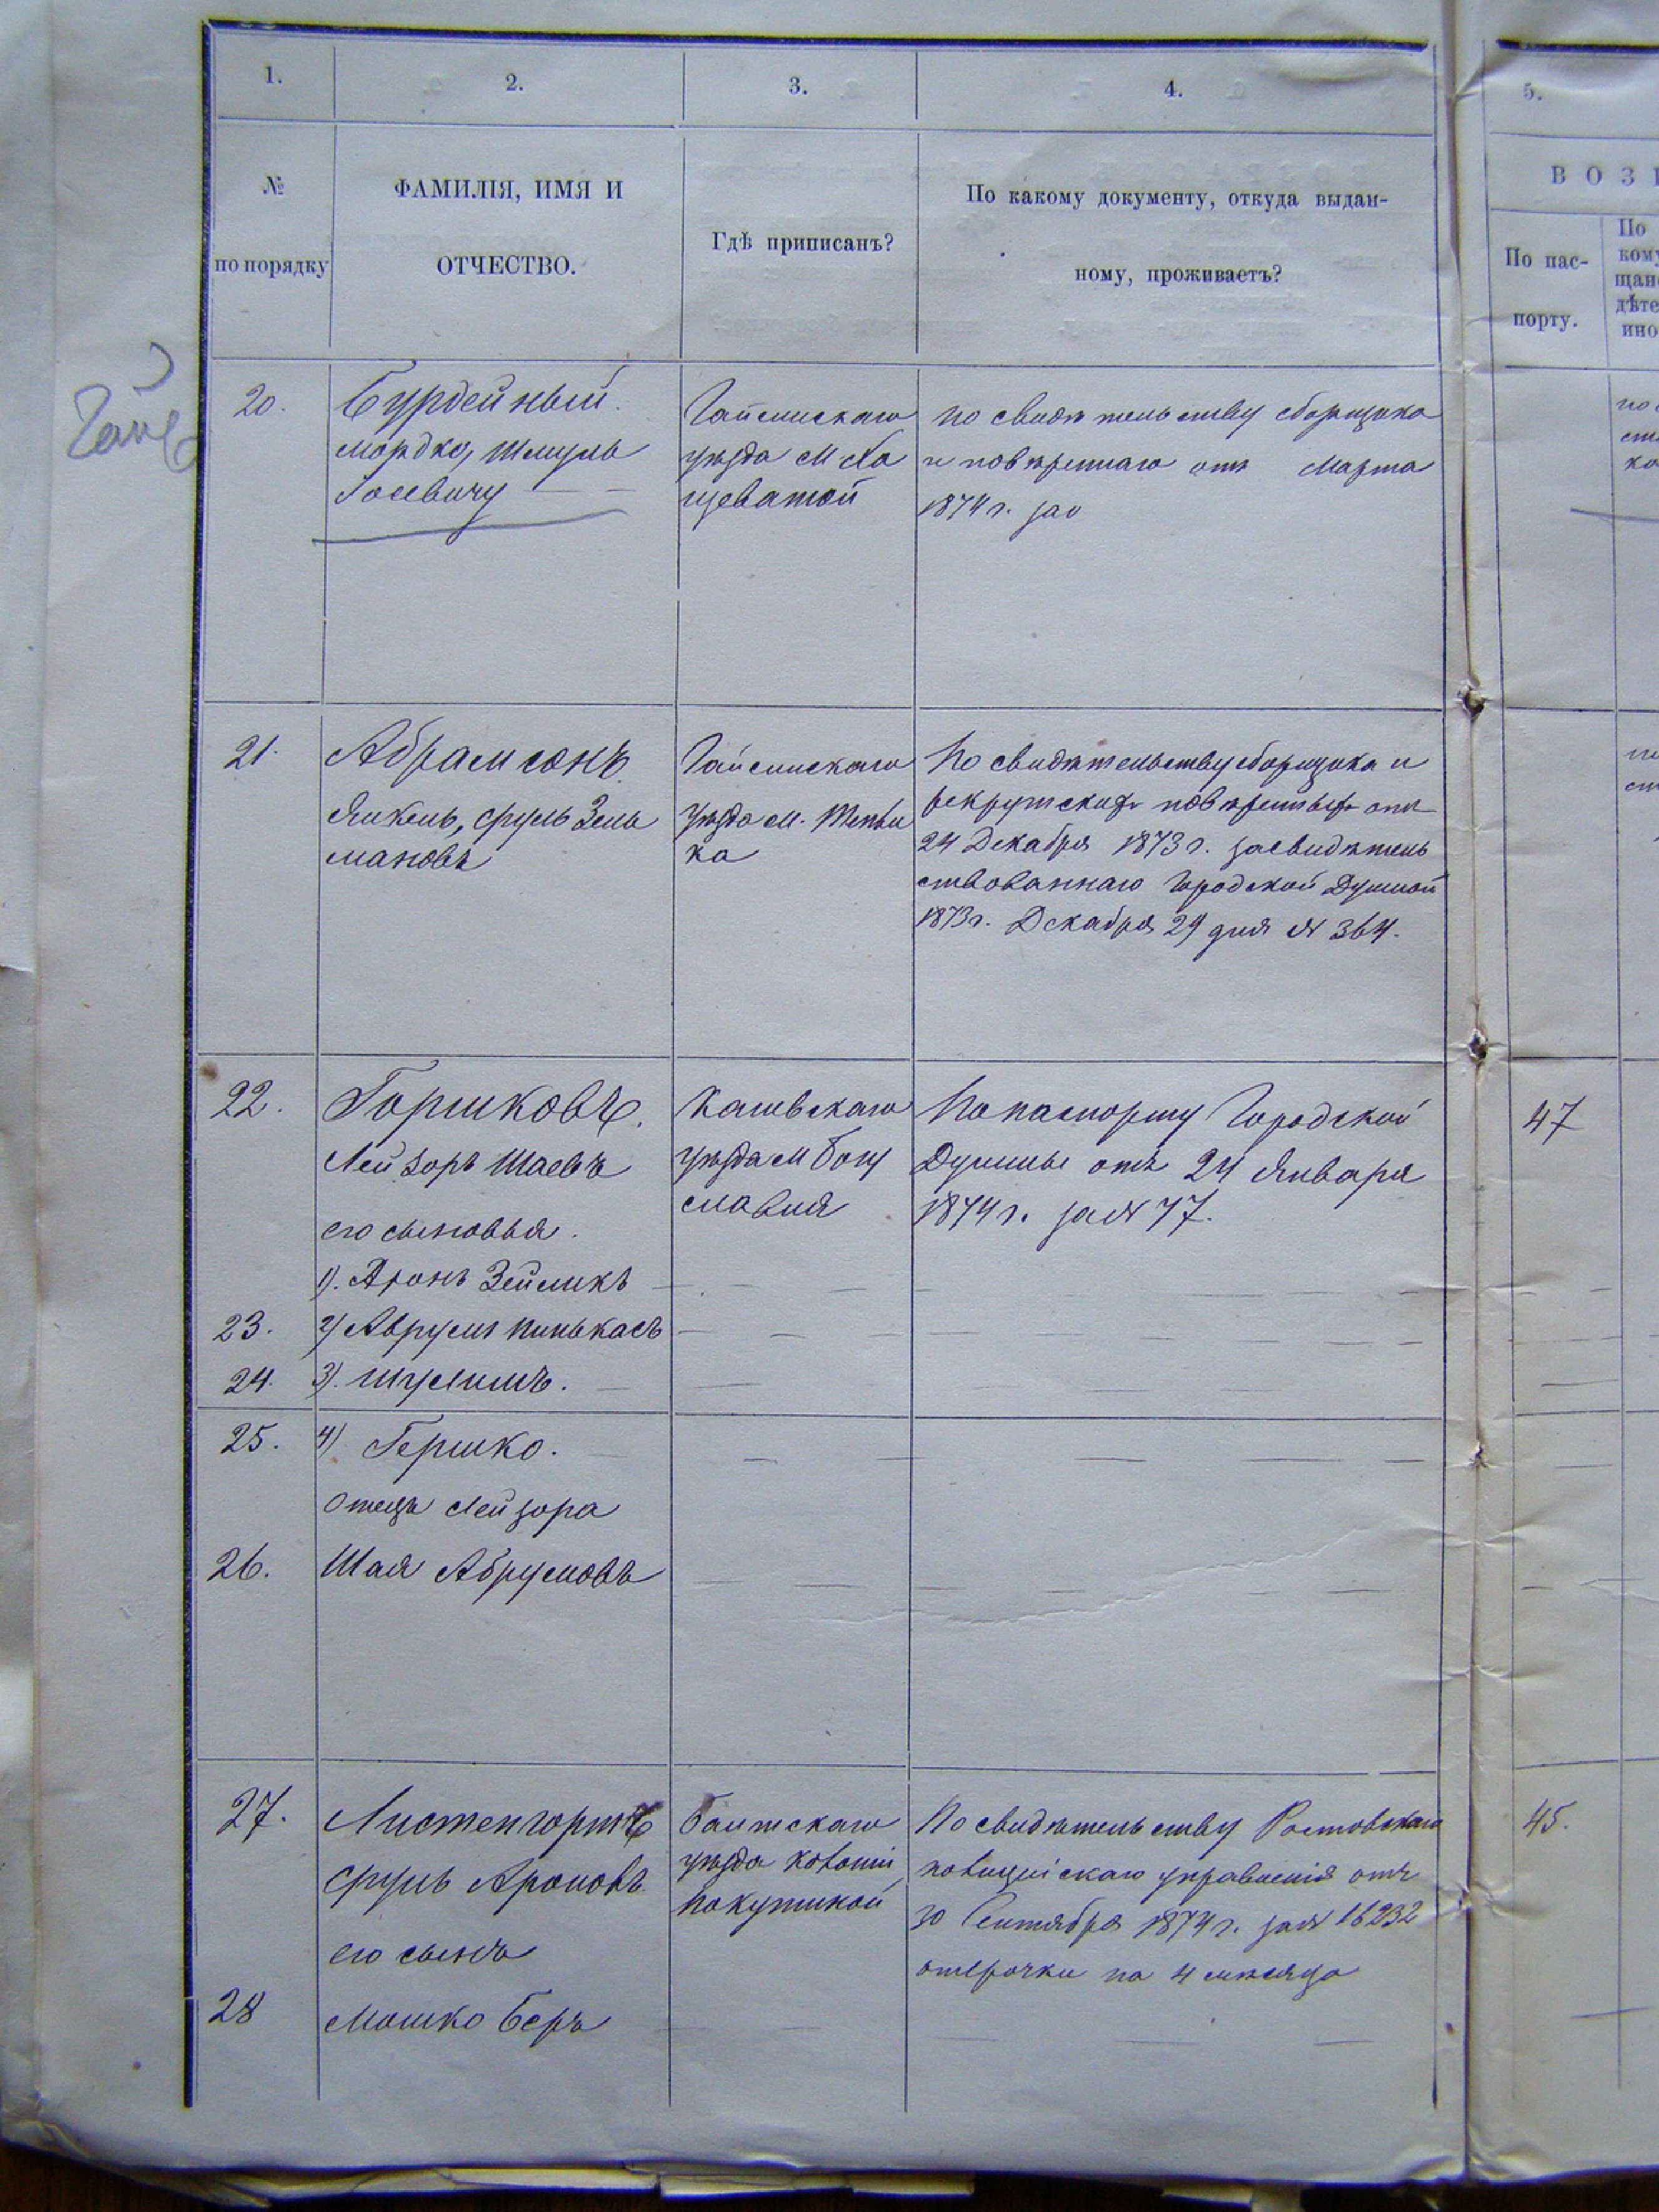 1. 2. 3. 4. 5.
№ по порядку
ФАМИЛІЯ, ИМЯ И
ОТЧЕСТВО.
Гдѣ приписанъ?
По какому документу, откуда выдан-
ному, проживаетъ?
ВОЗ
По пас-
порту.
По
кому
щан
дѣте
ино
20.
Бурдейный.
Мордко, Шмуль
Іосевичу
Гайсинскаго
уѣзда М. Ха
щеватой
по свидѣтельству сборщика
и повѣреннаго отъ Марта
1874 г. за
21.
Абрамсонъ
Янкель, Сруль Зель
мановъ
Гайсинскаго
уѣзда М. Тепли
ка
По свидѣтельству сборщика и
рекрутскихъ повѣренныхъ отъ
24 Декабря 1873 г. засвидѣтель
ствованнаго Городской Думой
1873 г. Декабря 29 дня № 364.
22.
Горшковъ.
Лейзоръ Шаевъ
его сыновья.
1). Аронъ Зейликъ
Каневскаго
уѣзда М Богу
славля
По паспорту Городской
Думы отъ 24 Января
1874 г. за № 77.
47
23. 2) Аврумъ Пинькасъ
24. 3). Шулимъ.
25. 4) Гершко.
Отецъ Лейзора
26. Шая Абрумовъ
27.
Листенгортъ
Сруль Ароновъ
его сынъ
Балтскаго
уѣзда колоніи
Покутиной
По свидѣтельству Ростовскаго
полицейскаго управленія отъ
30 Сентября 1874 г. за № 16232
отсрочки на 4 мѣсяца
45.
28 Мошко Беръ